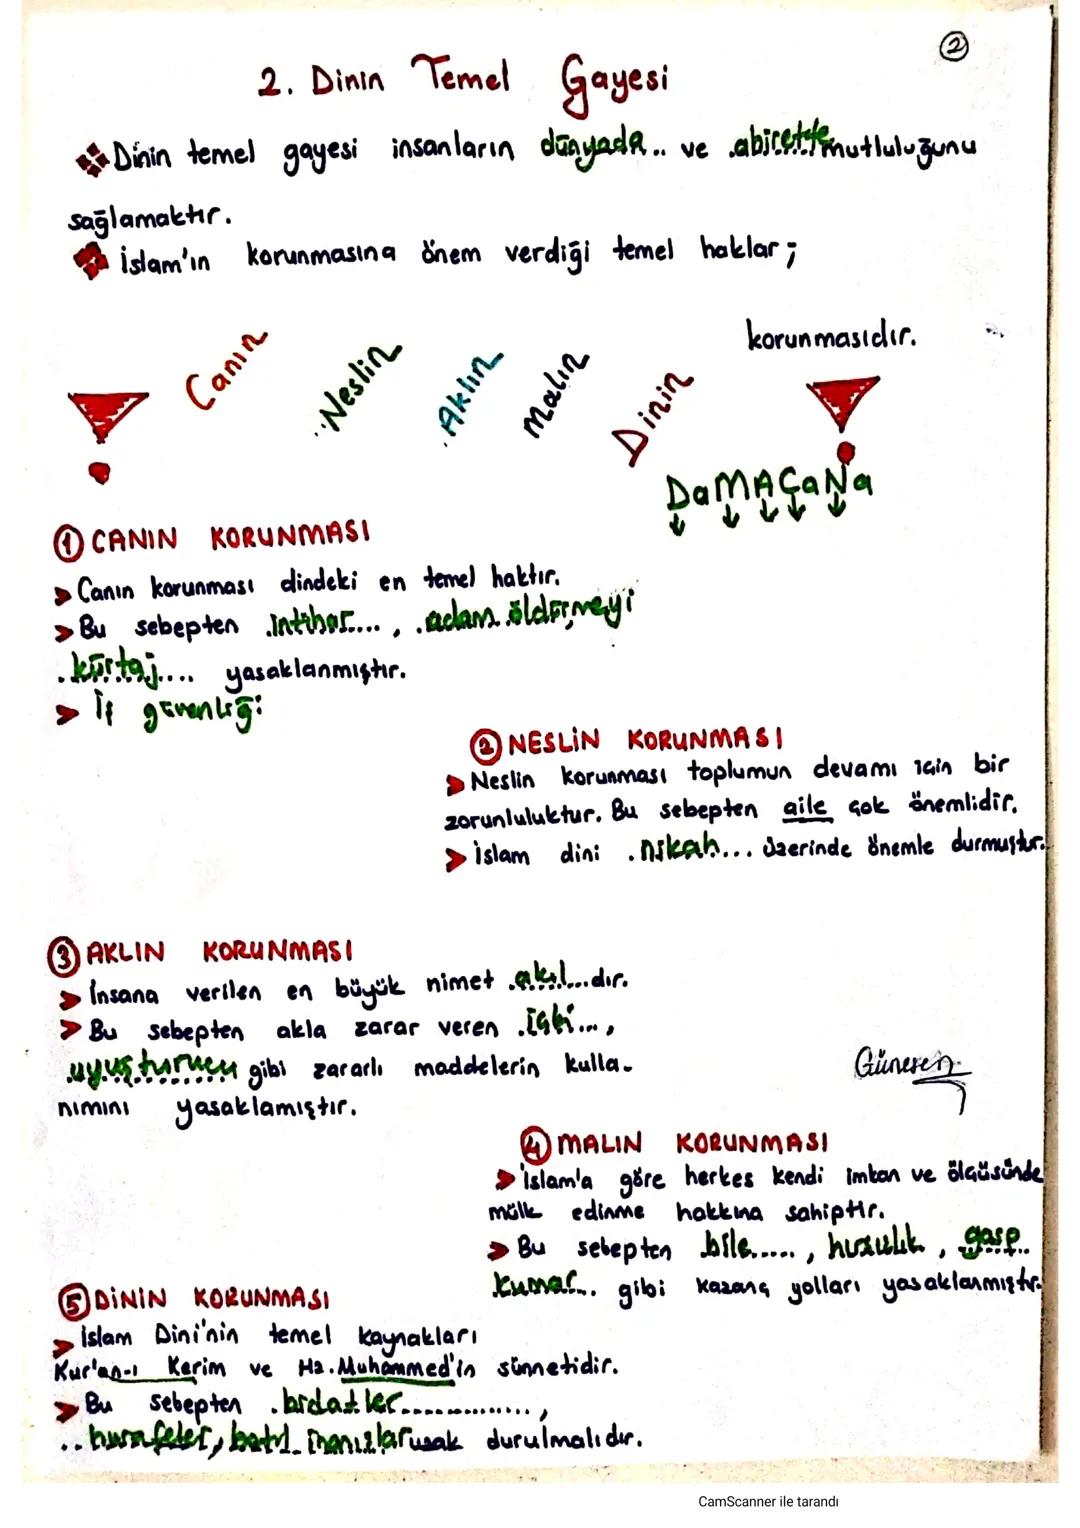 2
2. Dinin Temel Gayesi
Dinin temel gayesi insanların dünyada.. ve .ahirette mutluluğunu
sağlamaktır.
İslam'ın korunmasına önem verdiği temel haklar;
Canın
Neslin
Aklın
Malın
Dinin
korunmasıdır.
DaMAÇaNa
1 CANIN KORUNMASI
Canın korunması dindeki en temel haktır.
Bu sebepten .intihar..., .adam öldürmeyi
.kürtaj.... yasaklanmıştır.
İş güvenliği
2 NESLİN KORUNMASI
Neslin korunması toplumun devamı için bir
zorunluluktur. Bu sebepten aile çok önemlidir.
İslam dini .nikah... üzerinde önemle durmuştur.
3 AKLIN KORUNMASI
İnsana verilen en büyük nimet .akıl...dır.
Bu sebepten akla zarar veren .içki...,
.uyuşturucu gibi zararlı maddelerin kulla-
nımını yasaklamıştır.
Güneren
4 MALIN KORUNMASI
İslam'a göre herkes kendi imkan ve ölçüsünde
mülk edinme hakkına sahiptir.
Bu sebepten .hile....., hırsızlık, gasp..
kumar... gibi kazanç yolları yasaklanmıştır.
5 DİNİN KORUNMASI
İslam Dini'nin temel kaynakları
Kur'an-ı Kerim ve Hz. Muhammed'in sünnetidir.
Bu sebepten .bidatler..............,
..hurafeler, batıl inanışlar uzak durulmalıdır.
CamScanner ile tarandı